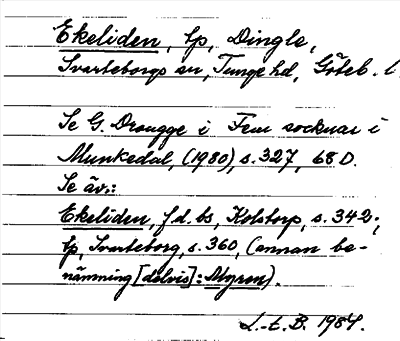 Ekeliden, lp, Dingle,
Svarteborgs sn, Tunge hd, Göteb. l
Se G. Drougge i Fem socknar i
Munkedal, (1980), s. 327, 68 D.
Se äv.:
Ekeliden, f.d. bs, Kolstorp, s. 342;
lp, Svarteborg, s. 360, (annan be-
nämning [delvis]: Myren).
L.-E. B. 1984.